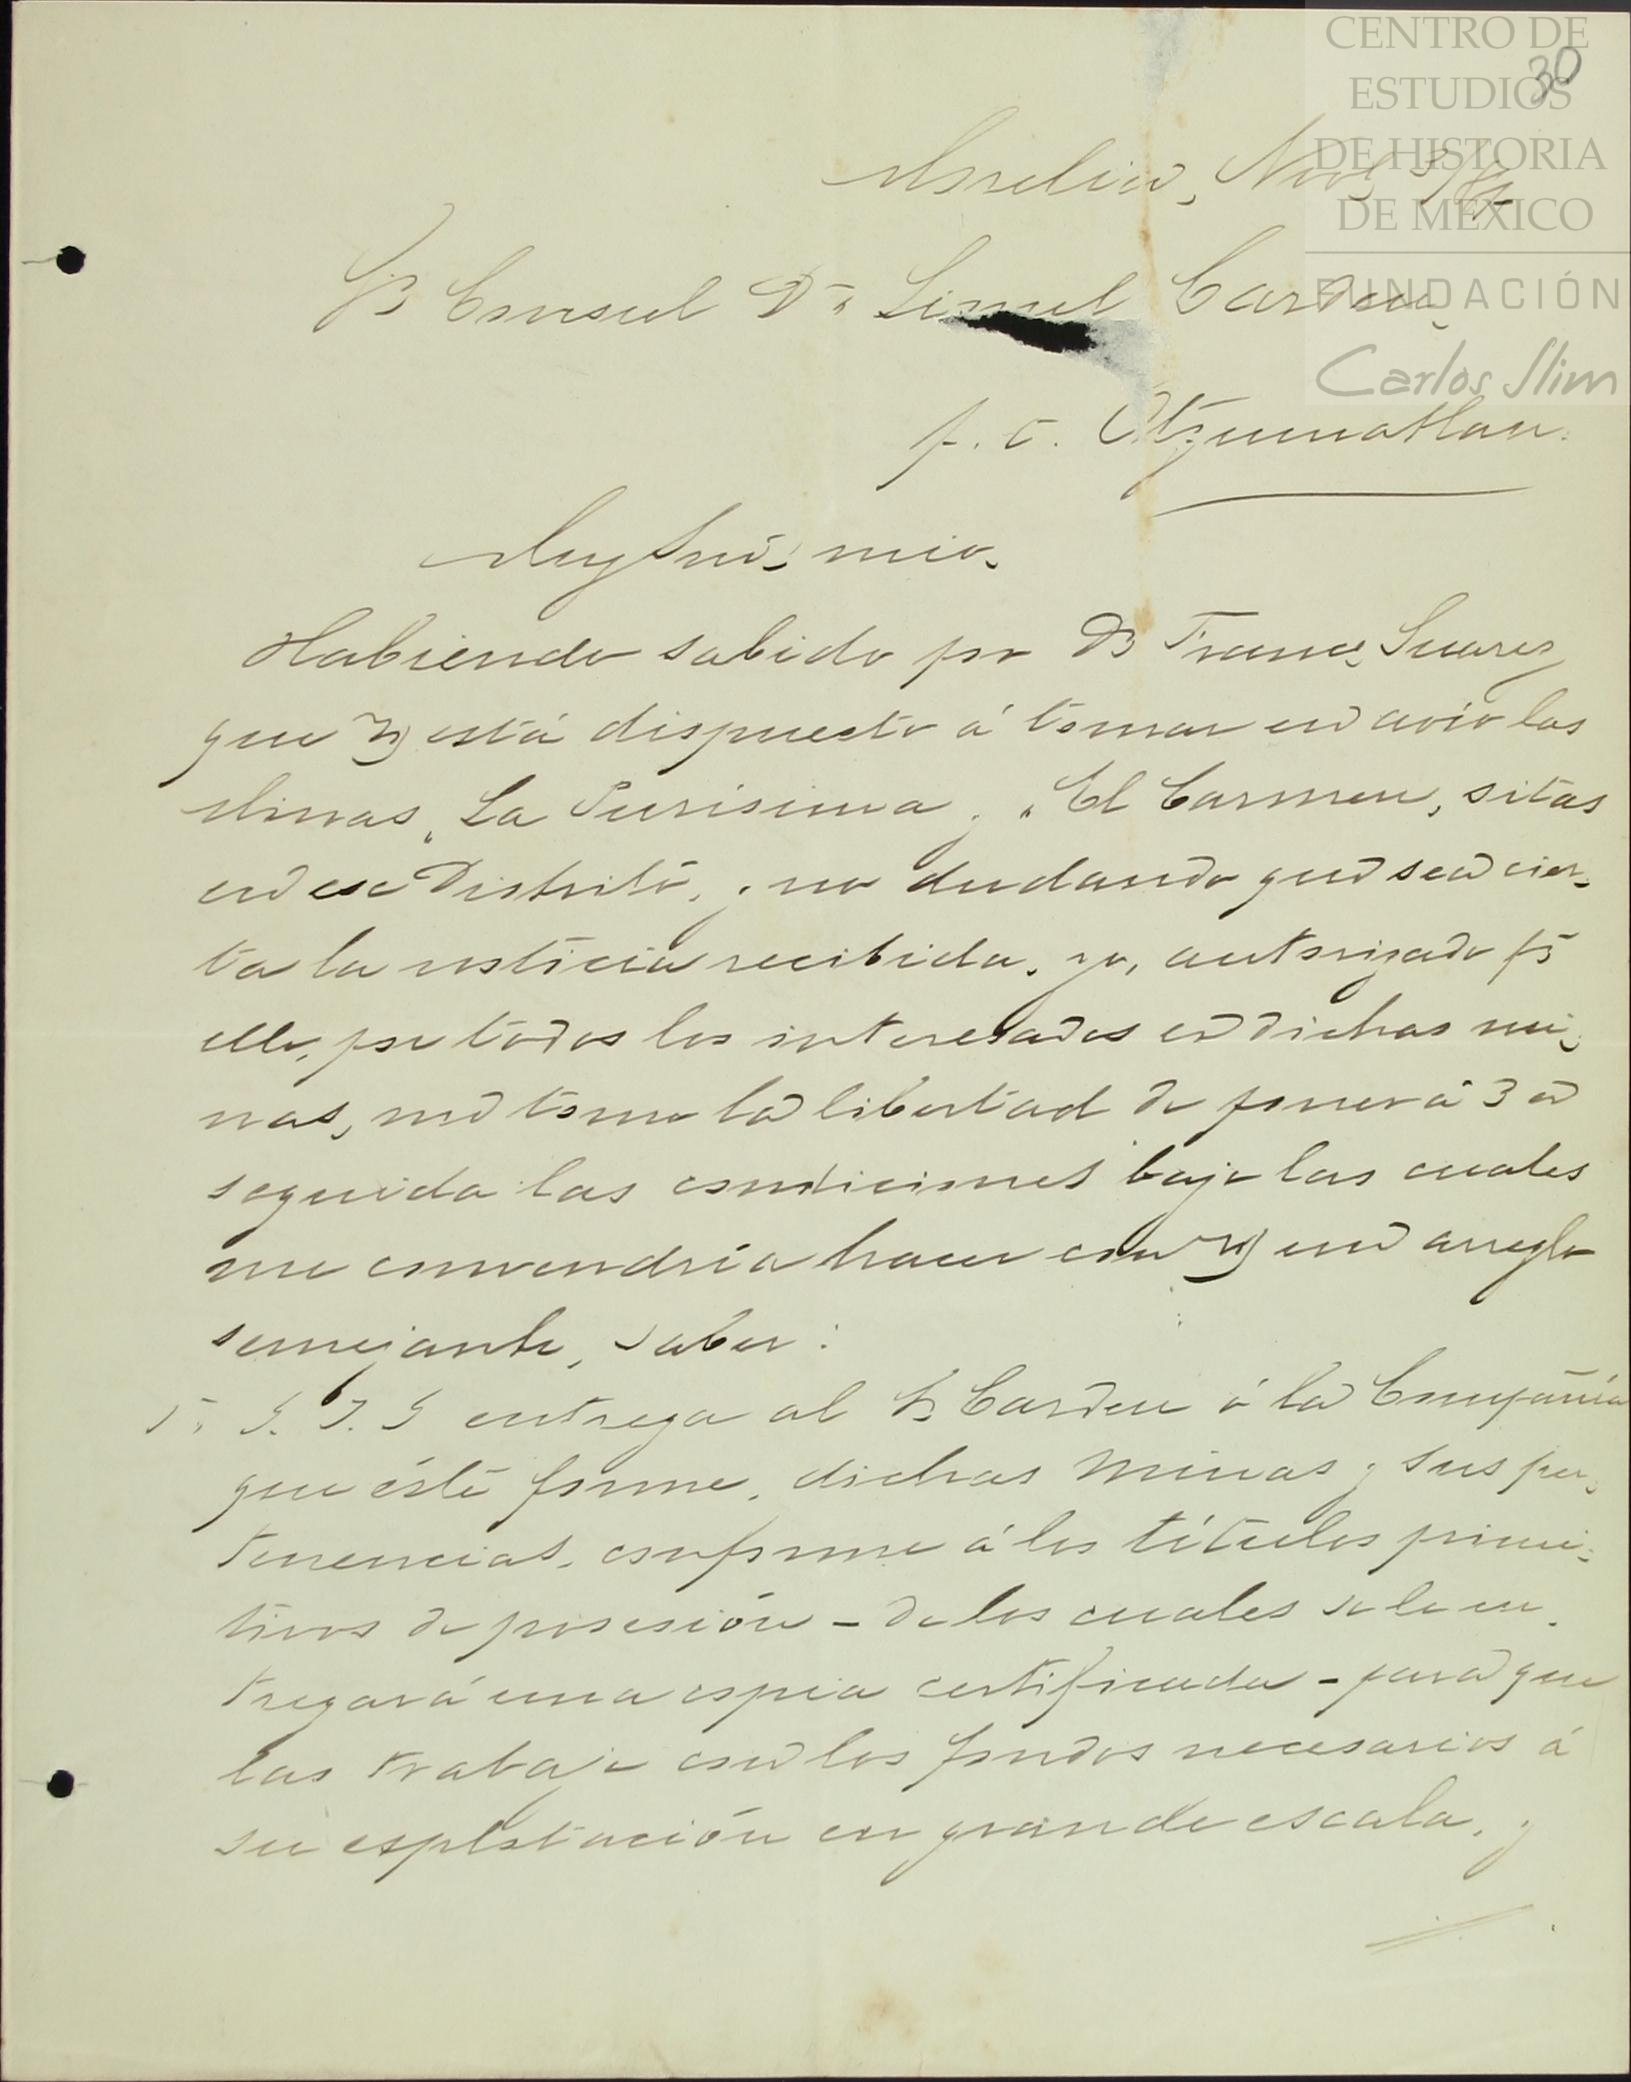 CENTRO DE
ESTUDIOS
DE HISTORIA
DE MÉXICO
FUNDACIÓN
Carlos Slim
30
Morelia, Nov.
Sr Consul Dn Lionel Carden
p. t. Otzumatlan.
Muy Sr mio.
Habiendo sabido por Dn Franco Suarez
que V está dispuesto á tomar en avío las
Minas "La Purísima y "El Carmen, sitas
en ese Distrito, y no dudando que sea cier-
ta la noticia recibida, yo, autorizado pa
ello, por todos los interesados en dichas mi-
nas, me tomo la libertad de poner á V en
seguida las condiciones bajo las cuales
me convendría hacer con V un arreglo
semejante, saber:
entrega al Sr Carden ó la Compañía
que éste forme, dichas minas y sus per-
tenencias, conforme á los títulos primi-
tivos de posesión - de los cuales se le en-
tregará una copia certificada - para que
las trabaje con los fondos necesarios á
su esplotación en grande escala, y